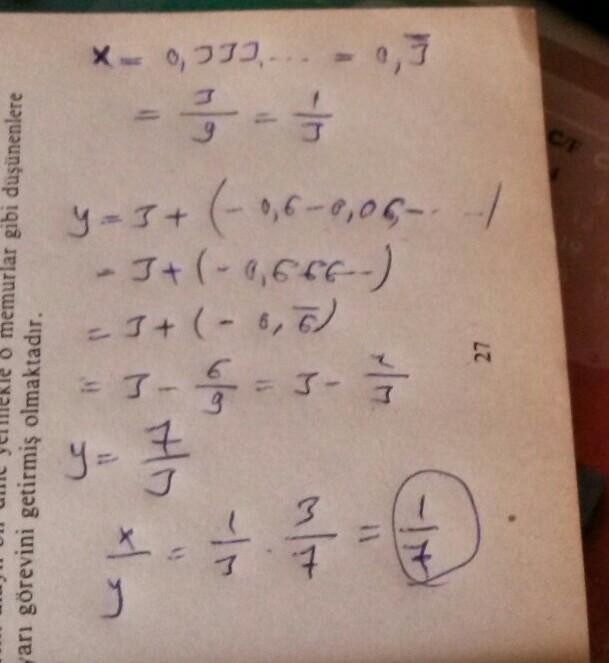 x = 0,333,... = 0,3̅
= 3/9 = 1/3
y = 3 + (- 0,6 - 0,06,- ...)
= 3 + (- 0,666...)
= 3 + (- 0,6̅)
= 3 - 6/9 = 3 - 2/3
y = 7/3
x/y = 1/3 . 3/7 = 1/7
27
yermekle o memurlar gibi düşünenlere
yarı görevini getirmiş olmaktadır.
C/F